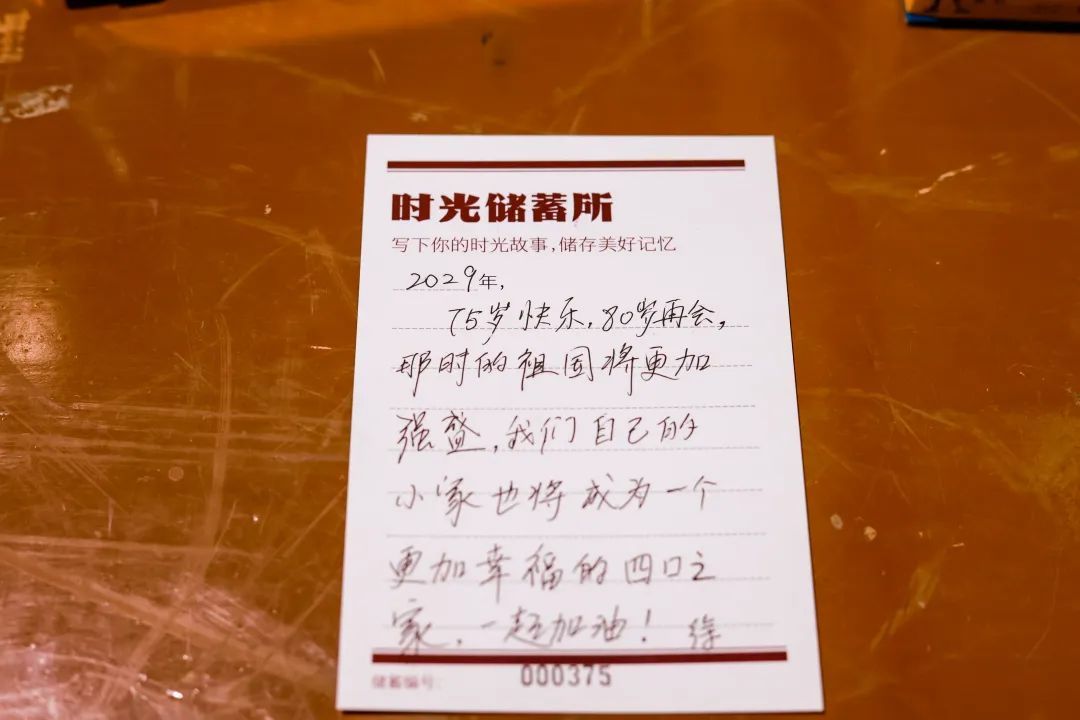 时光储蓄所
写下你的时光故事,储存美好记忆
2029年,
75岁快乐,80岁再会,
那时的祖国将更加
强盛,我们自己的
小家也将成为一个
更加幸福的四口之
家,一起加油! 徐
储蓄编号:
000375